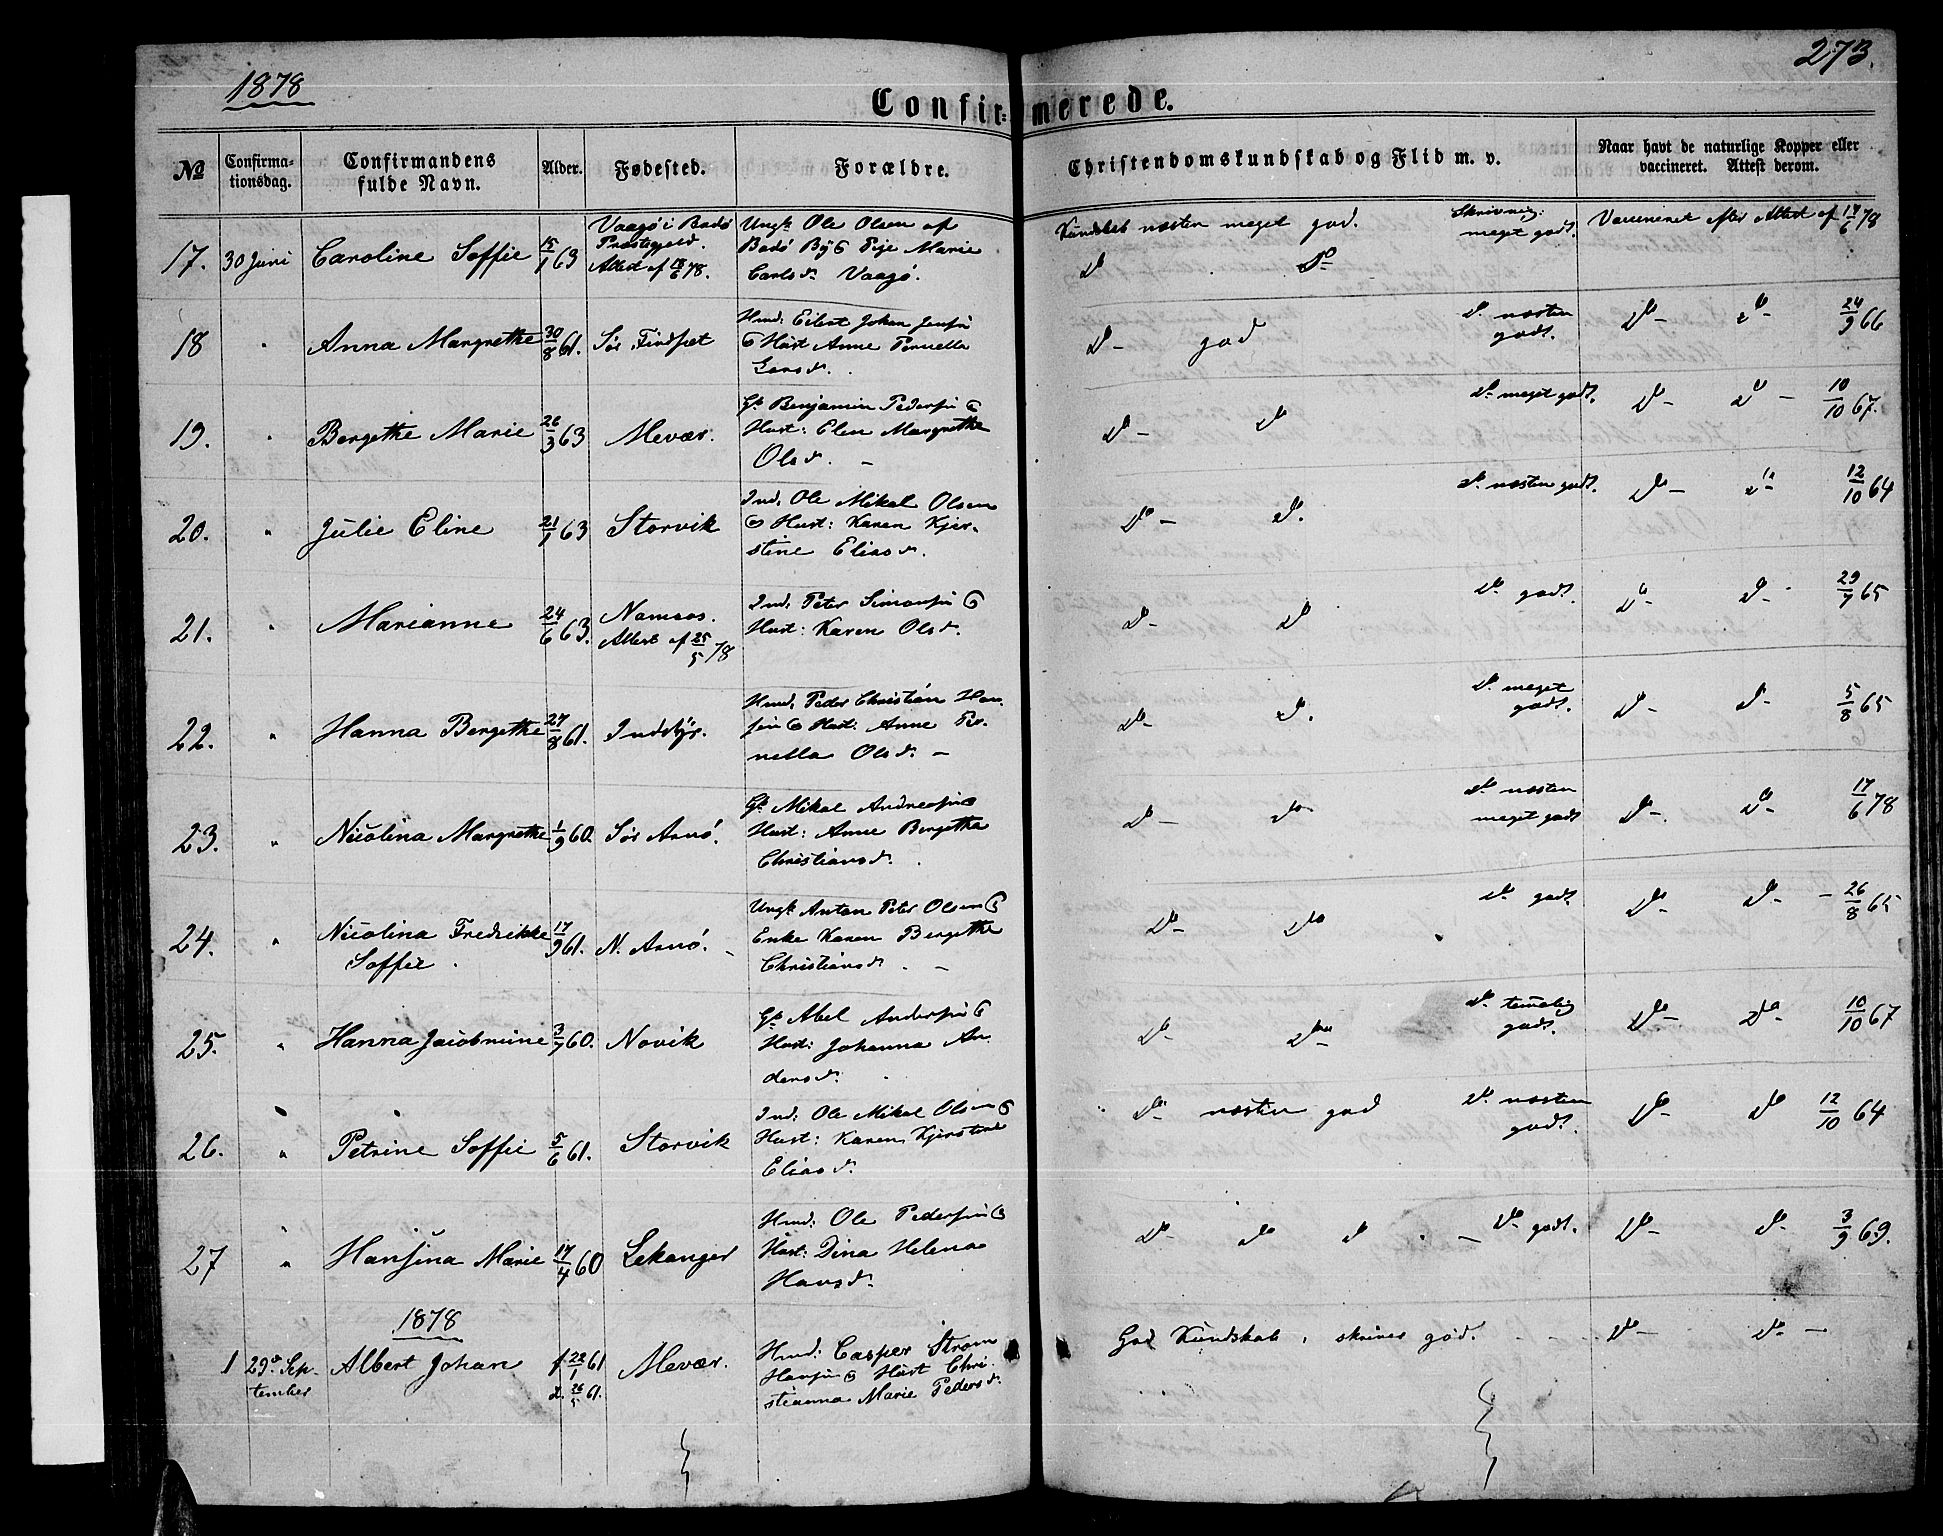 1878
273.
Confir= merede.
No
Confirma-
tionsdag.
Confirmandens
fulde Navn.
Alder.
Fødested.
Forældre.
Christendomskundskab og Flid m. v.
Naar havt de naturlige Kopper eller
vaccineret. Attest derom.
17. 30 Juni Caroline Soffie 15/1 63
Vaagø i Bodø
Præstegjeld.
Attest af 18/6 78.
Ungk. Ole Olsen af
Bodø By & Pige Marie
Carlsd. Vaagø.
Kundskab næsten meget god.
Do Do
Skrivning:
meget godt.
Vaccineret efter Attest af 17/6 78
18 " Anna Margrethe 30/8 61. Sør Findset
Hmd: Eilert Johan Jensen
& Hust Anne Pernella
Larsd.
Do god
Do næsten
godt.
Do Do 24/9 66
19. " Bergethe Marie 26/3 63 Mevær.
Gb. Benjamin Pedersen &
Hust: Elen Margrethe
Olsd.
Do Do
Do meget godt.
Do Do 10/10 67.
20. " Julie Eline 21/1 63 Storvik
Ind. Ole Mikal Olsen
& Hust: Karen Kjer-
stine Eliasd.
Do Do
Do næsten godt.
Do Do 12/10 64
21. " Marianne 24/6 63. Namsos.
Attest af 25/5 78
Ind: Peter Simonsen &
Hust: Karen Olsd.
Do Do
Do godt.
Do Do 29/7 65
22. " Hanna Bergethe 27/8 61. Indstyr.
Hmd. Peder Christian Han-
sen & Hust: Anne Per-
nella Olsd.
Do Do
Do meget
godt.
Do Do 5/8 65
23. " Nicolina Margrethe 1/9 60. Sør Arnø.
Gb. Mikal Andreasen &
Hust: Anne Bergethe
Christiansd.
Do Do
Do næsten
meget godt
Do Do 17/6 78
24. " Nicolina Fredrikke
Soffie 17/9 61. N. Arnø.
Ungk. Anton Peter Olsen &
Enke Karen Bergethe
Christiansd.
Do Do
Do godt.
Do Do 26/8 65
25. " Hanna Jacobmine 3/7 60. Novik
Gb. Abel Andersen &
Hust: Johanna An-
dersd.
Do Do
Do temelig
godt.
Do Do 10/10 67
26. " Petrine Soffie 5/6 61. Storvik
Ind: Ole Mikal Olsen &
Hust: Karen Kjerstine
Eliasd.
Do næsten god
Do næsten
godt.
Do Do 12/10 64
27 " Hansina Marie 17/4 60 Lekanger
Hmd: Ole Pedersen &
Hust: Dina Helena
Hansd.
Do Do Do
Do godt.
Do Do 3/9 69.
1878
1 29de Sep-
tember
Albert Johan f. 22/1 61
d. 26/5 61.
Mevær.
Hmd: Casper Strøm
Hansen & Hust Chri-
stianna Marie Pedersd.
God Kundskab, skriver god.
Do Do